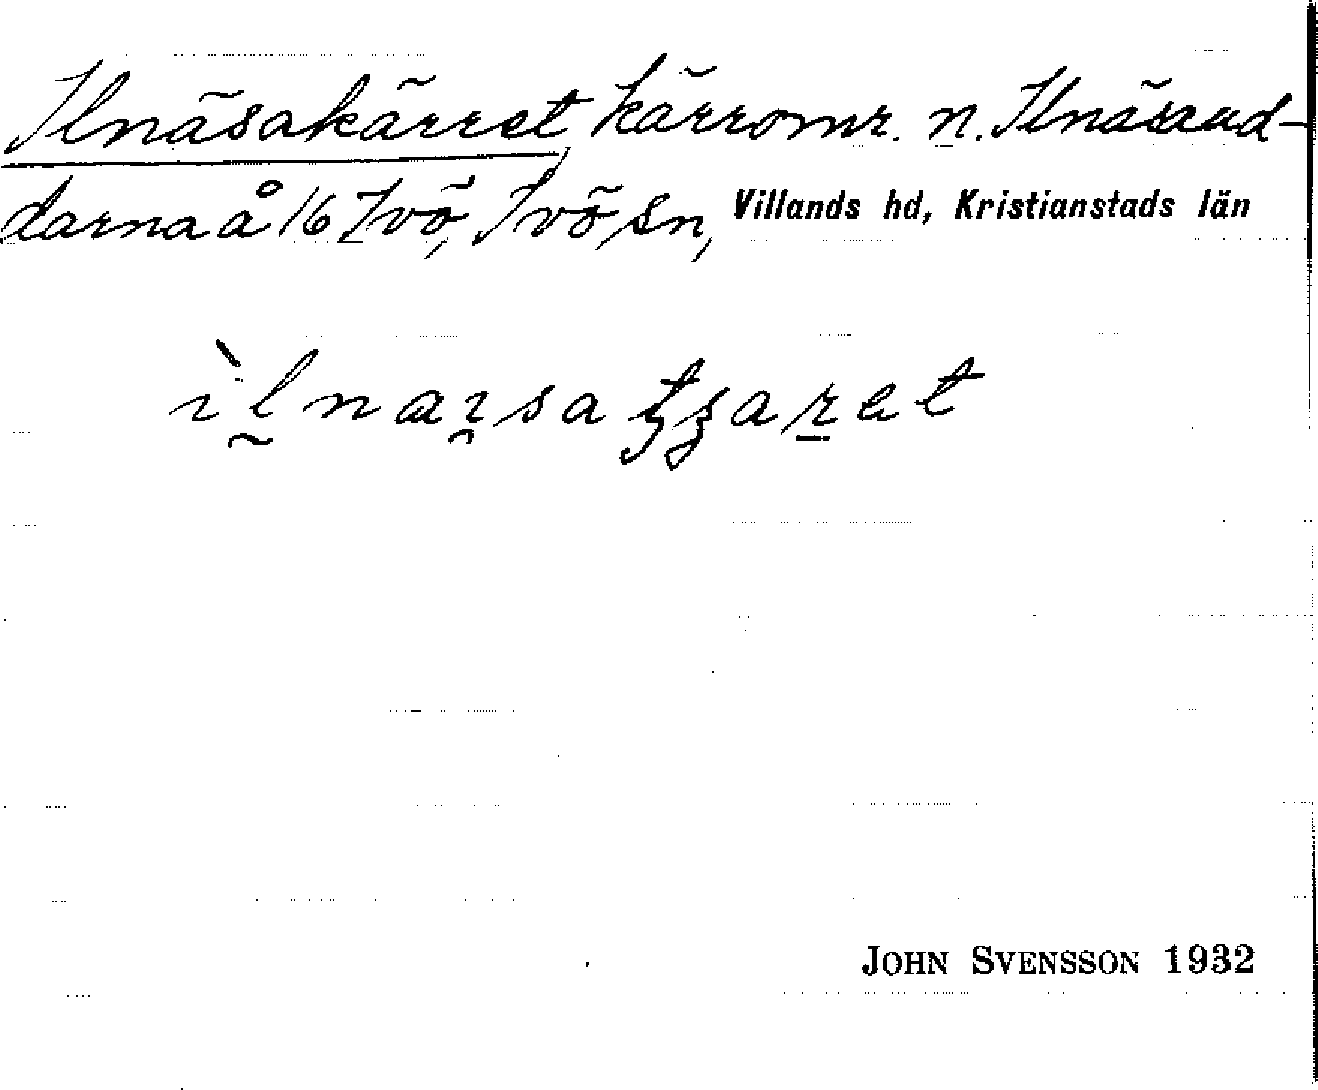 Ilnäsakärret, kärromr. n. Ilnäsaud-
darna å 16 Ivö, Ivö sn, Villands hd, Kristianstads län
ìlnaısatʒaret
JOHN SVENSSON 1932